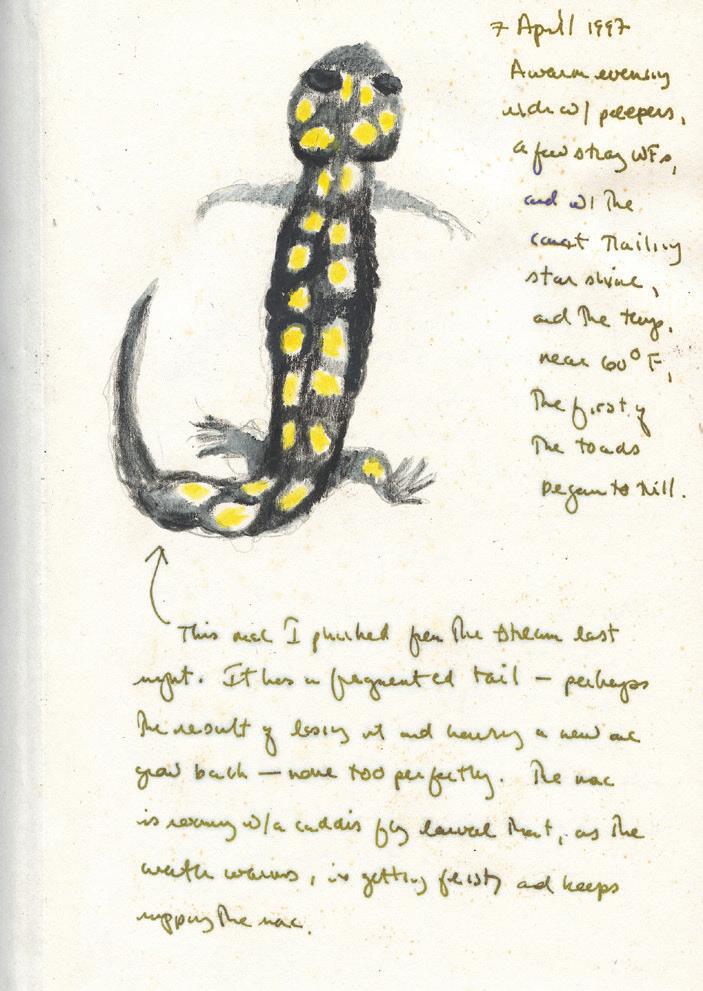 7 April 1997
A warm evening
rich w/ peepers,
a few stray WFs,
and w/ the
comet trailing
star shine,
and the temp.
near 60° F,
the first of
the toads
began to trill.
This mac I plucked from the stream last
night. It has a fragmented tail — perhaps
the result of losing it and having a new one
grow back — none too perfectly. The mac
is rooming w/ a caddis fly larval that, as the
water warms, is getting feisty and keeps
nipping the mac.